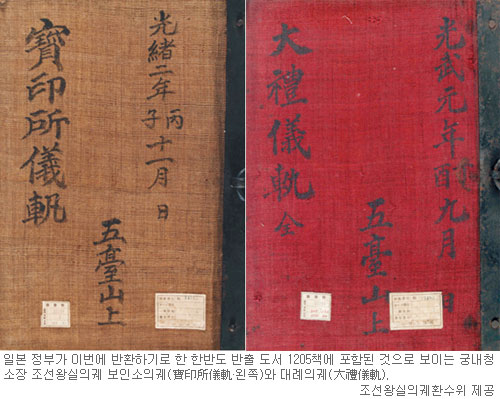 光緒二年丙子十一月 日
五臺山上
寶印所儀軌
光武元年丁酉九月 日
五臺山上
大禮儀軌 全
일본 정부가 이번에 반환하기로 한 한반도 반출 도서 1205책에 포함된 것으로 보이는 궁내청
소장 조선왕실의궤 보인소의궤(寶印所儀軌·왼쪽)와 대례의궤(大禮儀軌).
조선왕실의궤환수위 제공